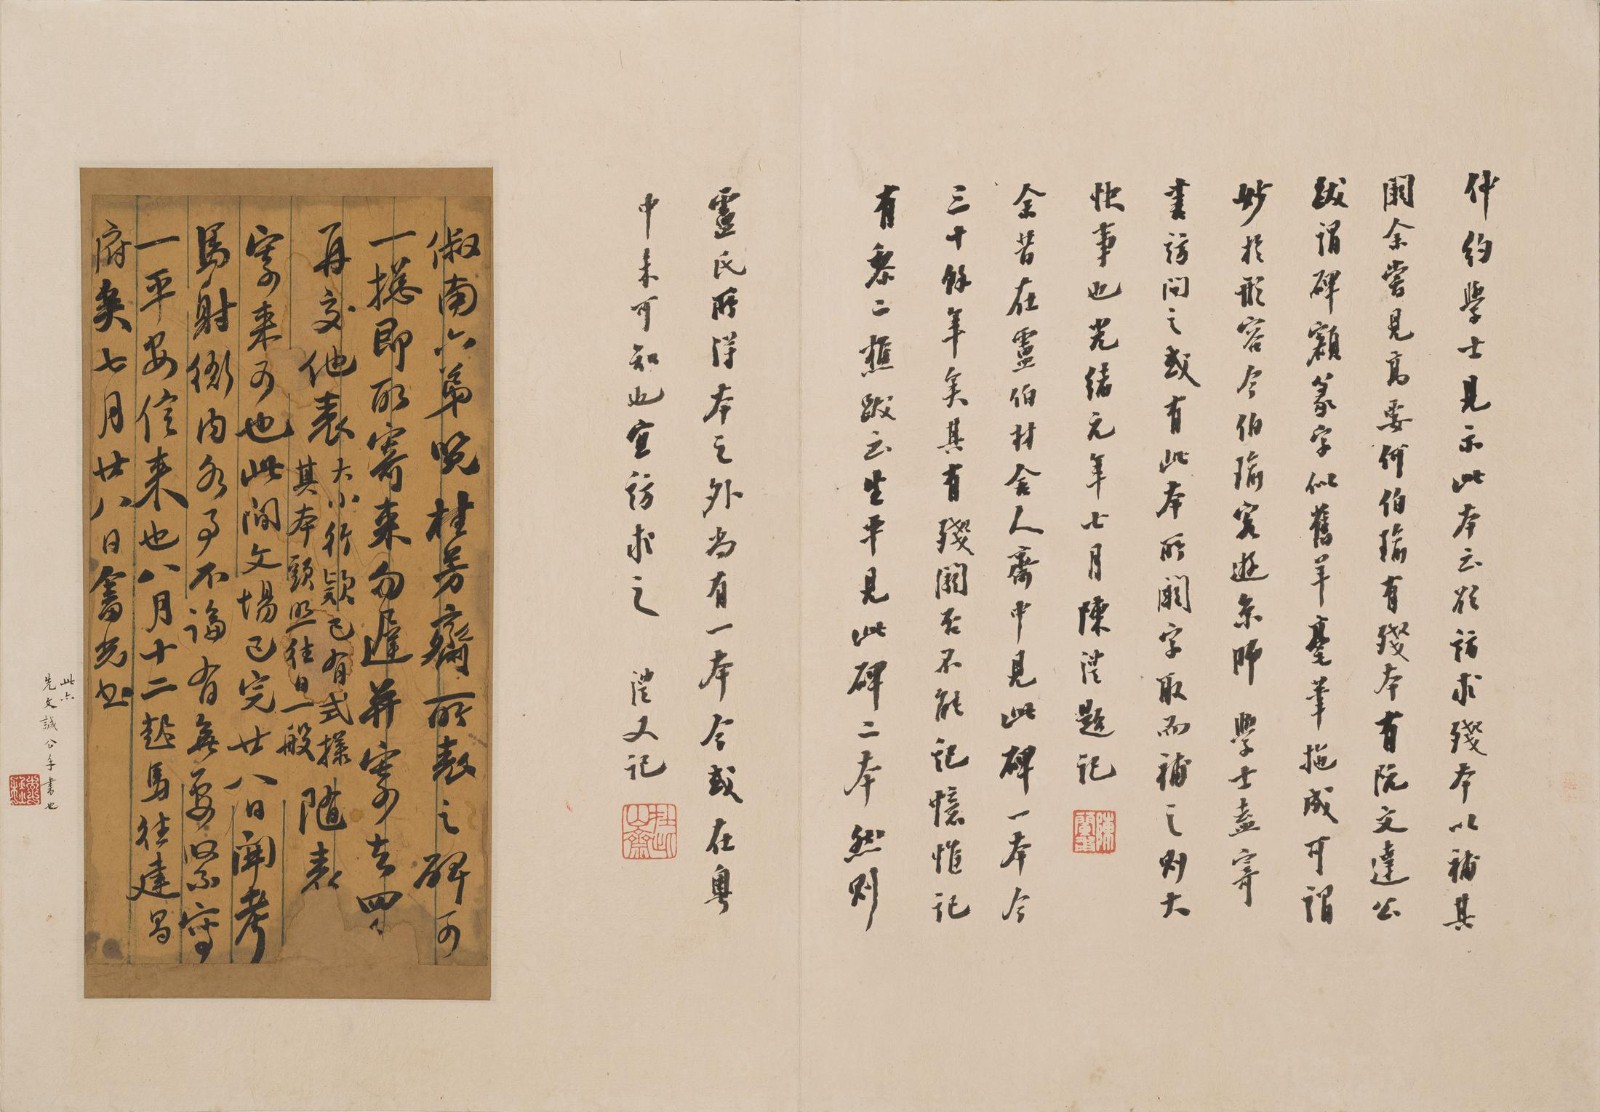 仲約學士見示此本云欲訪求殘本以補其
闕余嘗見高要何伯瑜有殘本有阮文達公
跋謂碑額篆字似舊羊毫筆拖成可謂
妙於形容今伯瑜客遊京師 學士盍寄
書訪問之或有此本所闕字取而補之則大
快事也光緒元年七月陳澧題記
陳蘭甫
余昔在靈伯村舍人齋中見此碑一本今
三十餘年矣其有殘闕否不能記憶惟記
有黎二樵跋云生平見此碑二本然則
靈氏所得本之外尚有一本今或在粵
中未可知也宜訪求之 澧又記
俶南六弟晚桂芳齋所表之碑可
一搃即所寄來勿遲并寄去四
再交他表大小行款已有式樣隨表
其本頭照往日一般
字來可也此間文場已完廿八日開考
馬射衙內各事不論有無要緊寄
一平安信來也八月十二起馬往建昌
府矣七月廿八日
此亦
先文誠公手書也